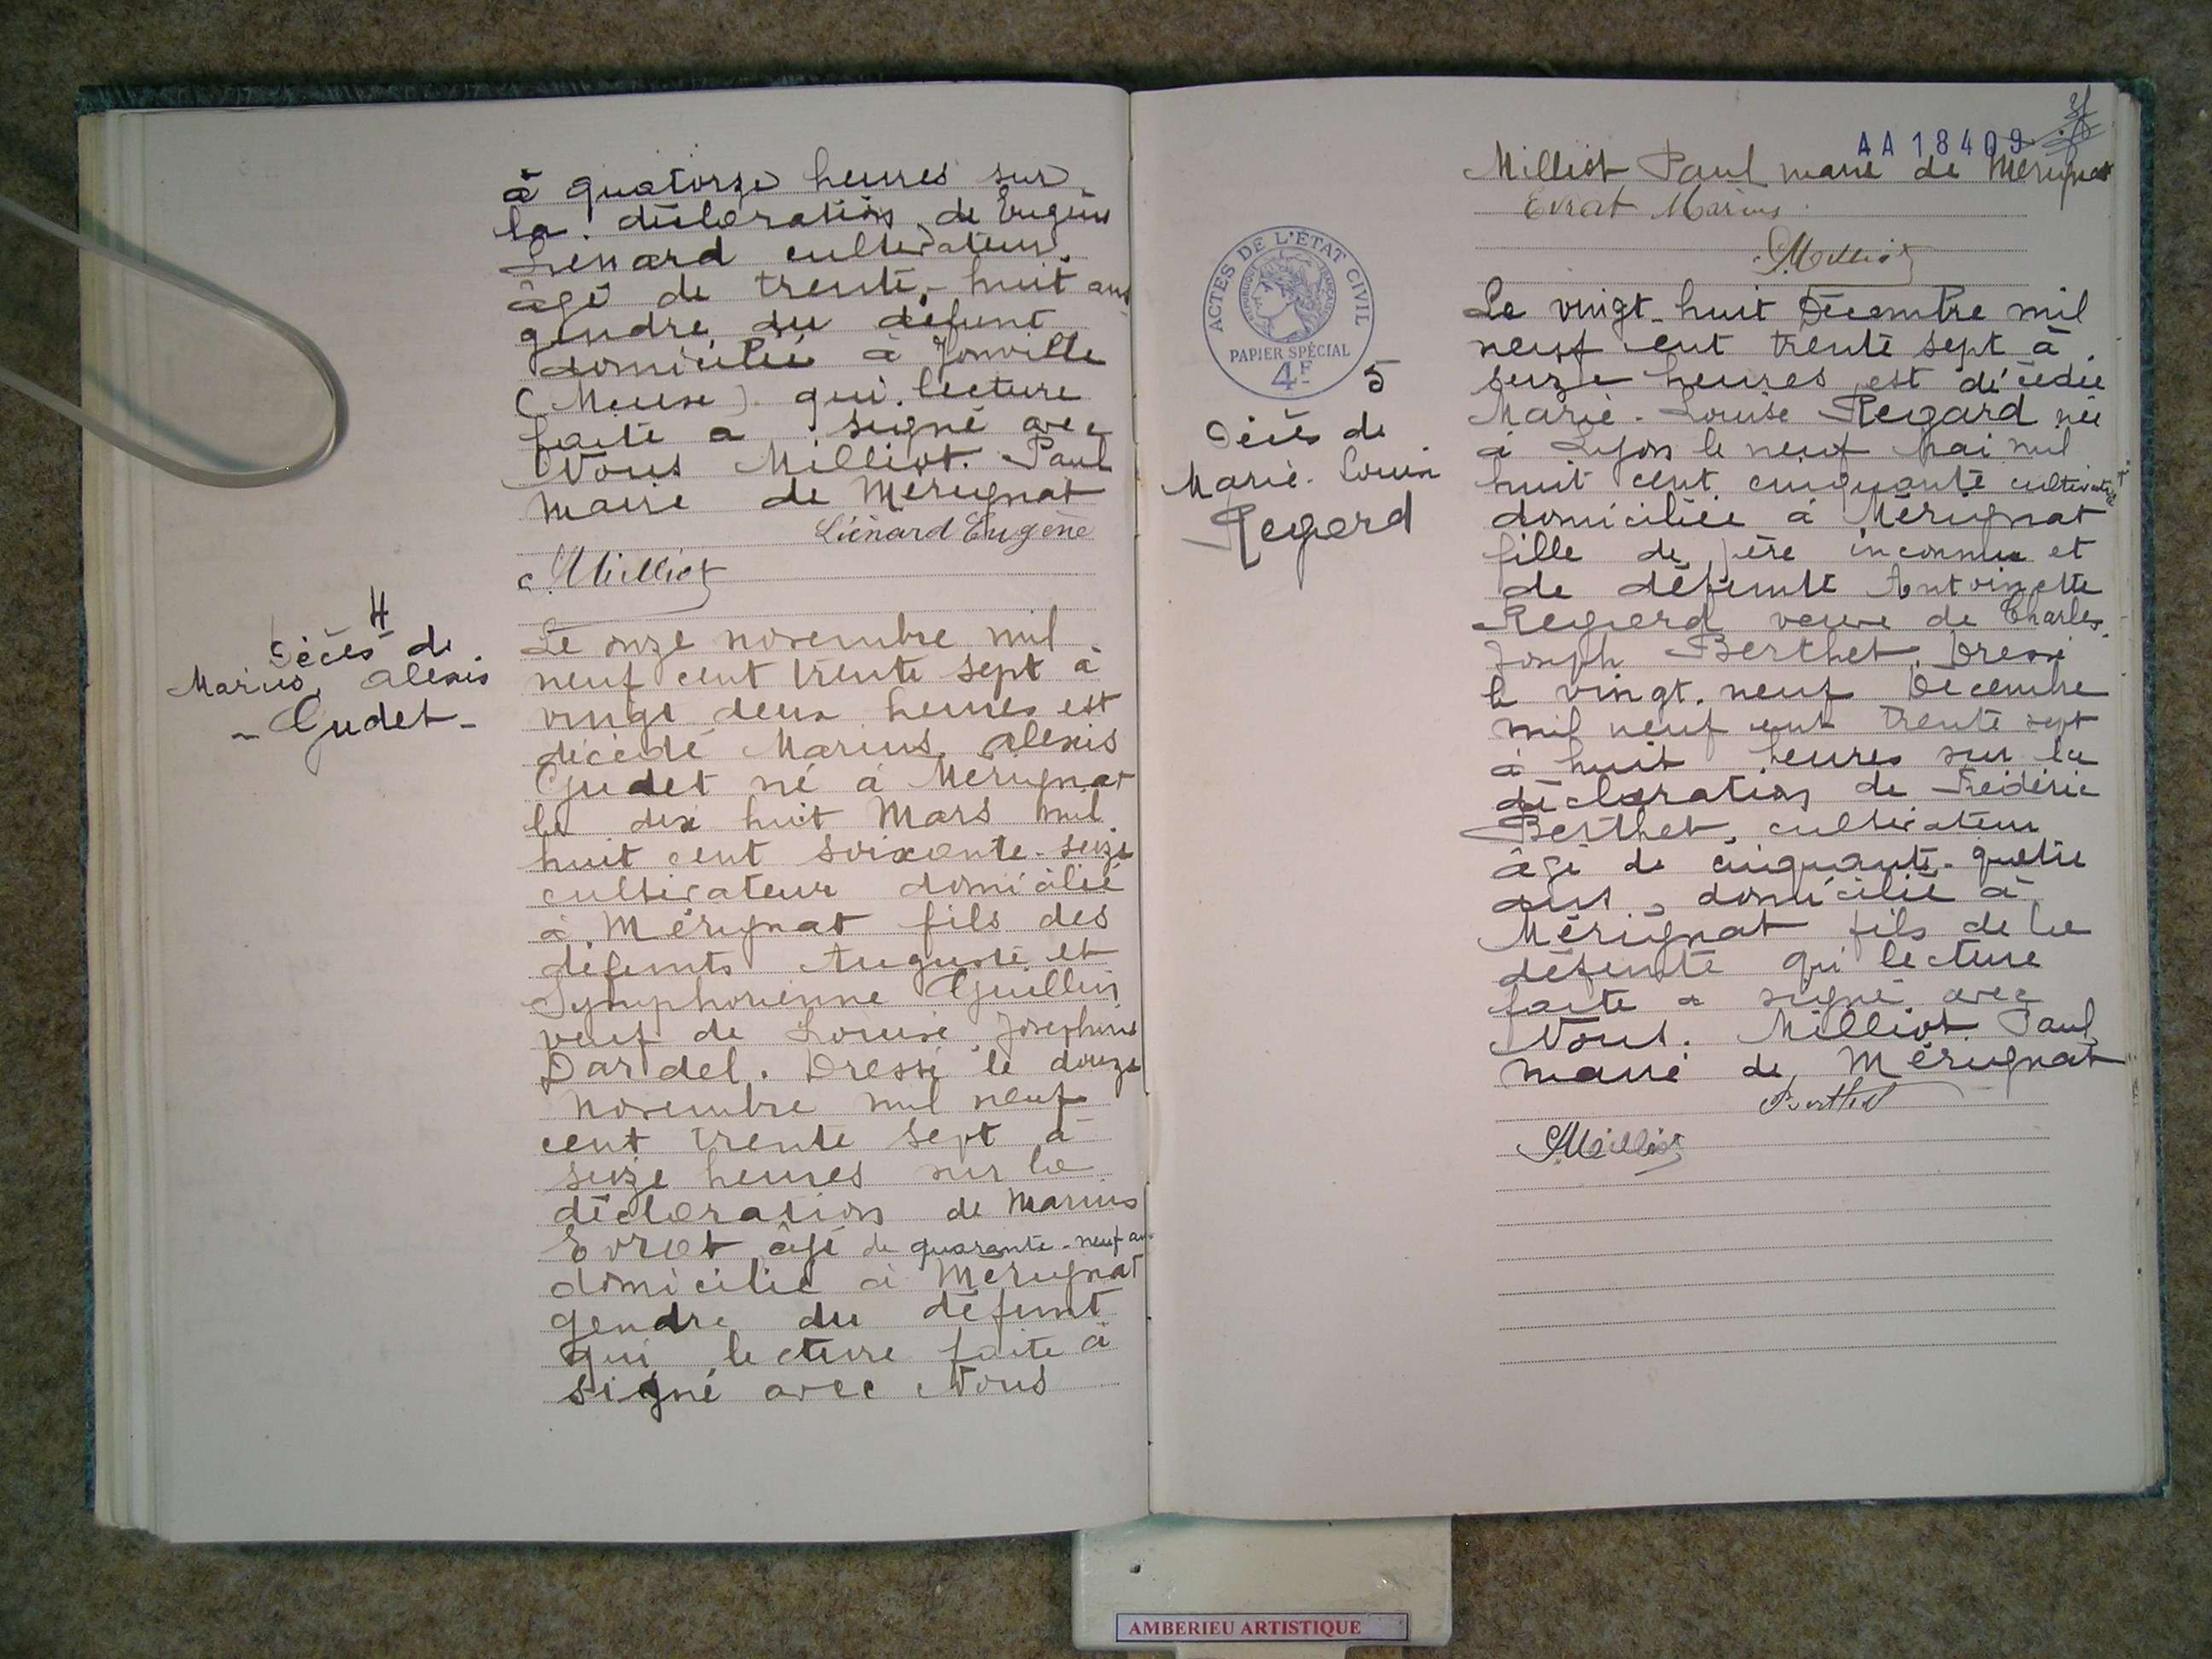 à quatorze heures sur
la déclaration de Eugène
Lienard cultivateur
âgé de trente-huit ans
gendre du défunt
domicilié à Jonville
(Meuse) qui lecture
faite a signé avec
Nous Milliot Paul
maire de Mérignat
Liénard Eugène
Milliot
4
Décès de
Marius, Alexis
- Gudet -
Le onze novembre mil
neuf cent trente sept à
vingt deux heures est
décédé Marius, Alexis
Gudet né à Mérignat
le dix huit Mars mil
huit cent soixante-seize
cultivateur domicilié
à Mérignat fils des
défunts Auguste et
Symphorienne Guillin
veuf de Louise Joséphine
Dardel. Dressé le douze
novembre mil neuf
cent trente sept à
seize heures sur la
déclaration de Marius
Evrat âgé de quarante-neuf ans
domicilié à Mérignat
gendre du défunt
qui lecture faite à
signé avec Nous
AA 18409
Milliot Paul maire de Mérignat
Evrat Marius
Milliot
ACTES DE L'ÉTAT CIVIL
RÉPUBLIQUE FRANÇAISE
PAPIER SPÉCIAL
4F
5
Décès de
Marie-Louise
Regard
Le vingt-huit Décembre mil
neuf cent trente sept à
seize heures est décédée
Marie-Louise Regard née
à Lyon le neuf Mai mil
huit cent cinquante cultivatrice
domiciliée à Mérignat
fille de père inconnu et
de défunte Antoinette
Regard veuve de Charles,
Joseph Berthet. Dressé
le vingt-neuf Décembre
mil neuf cent trente sept
à huit heures sur la
déclaration de Frédéric
Berthet, cultivateur
âgé de cinquante-quatre
ans, domicilié à
Mérignat fils de la
défunte qui lecture
faite a signé avec
Nous. Milliot Paul,
maire de Mérignat
Berthet
Milliot
AMBERIEU ARTISTIQUE